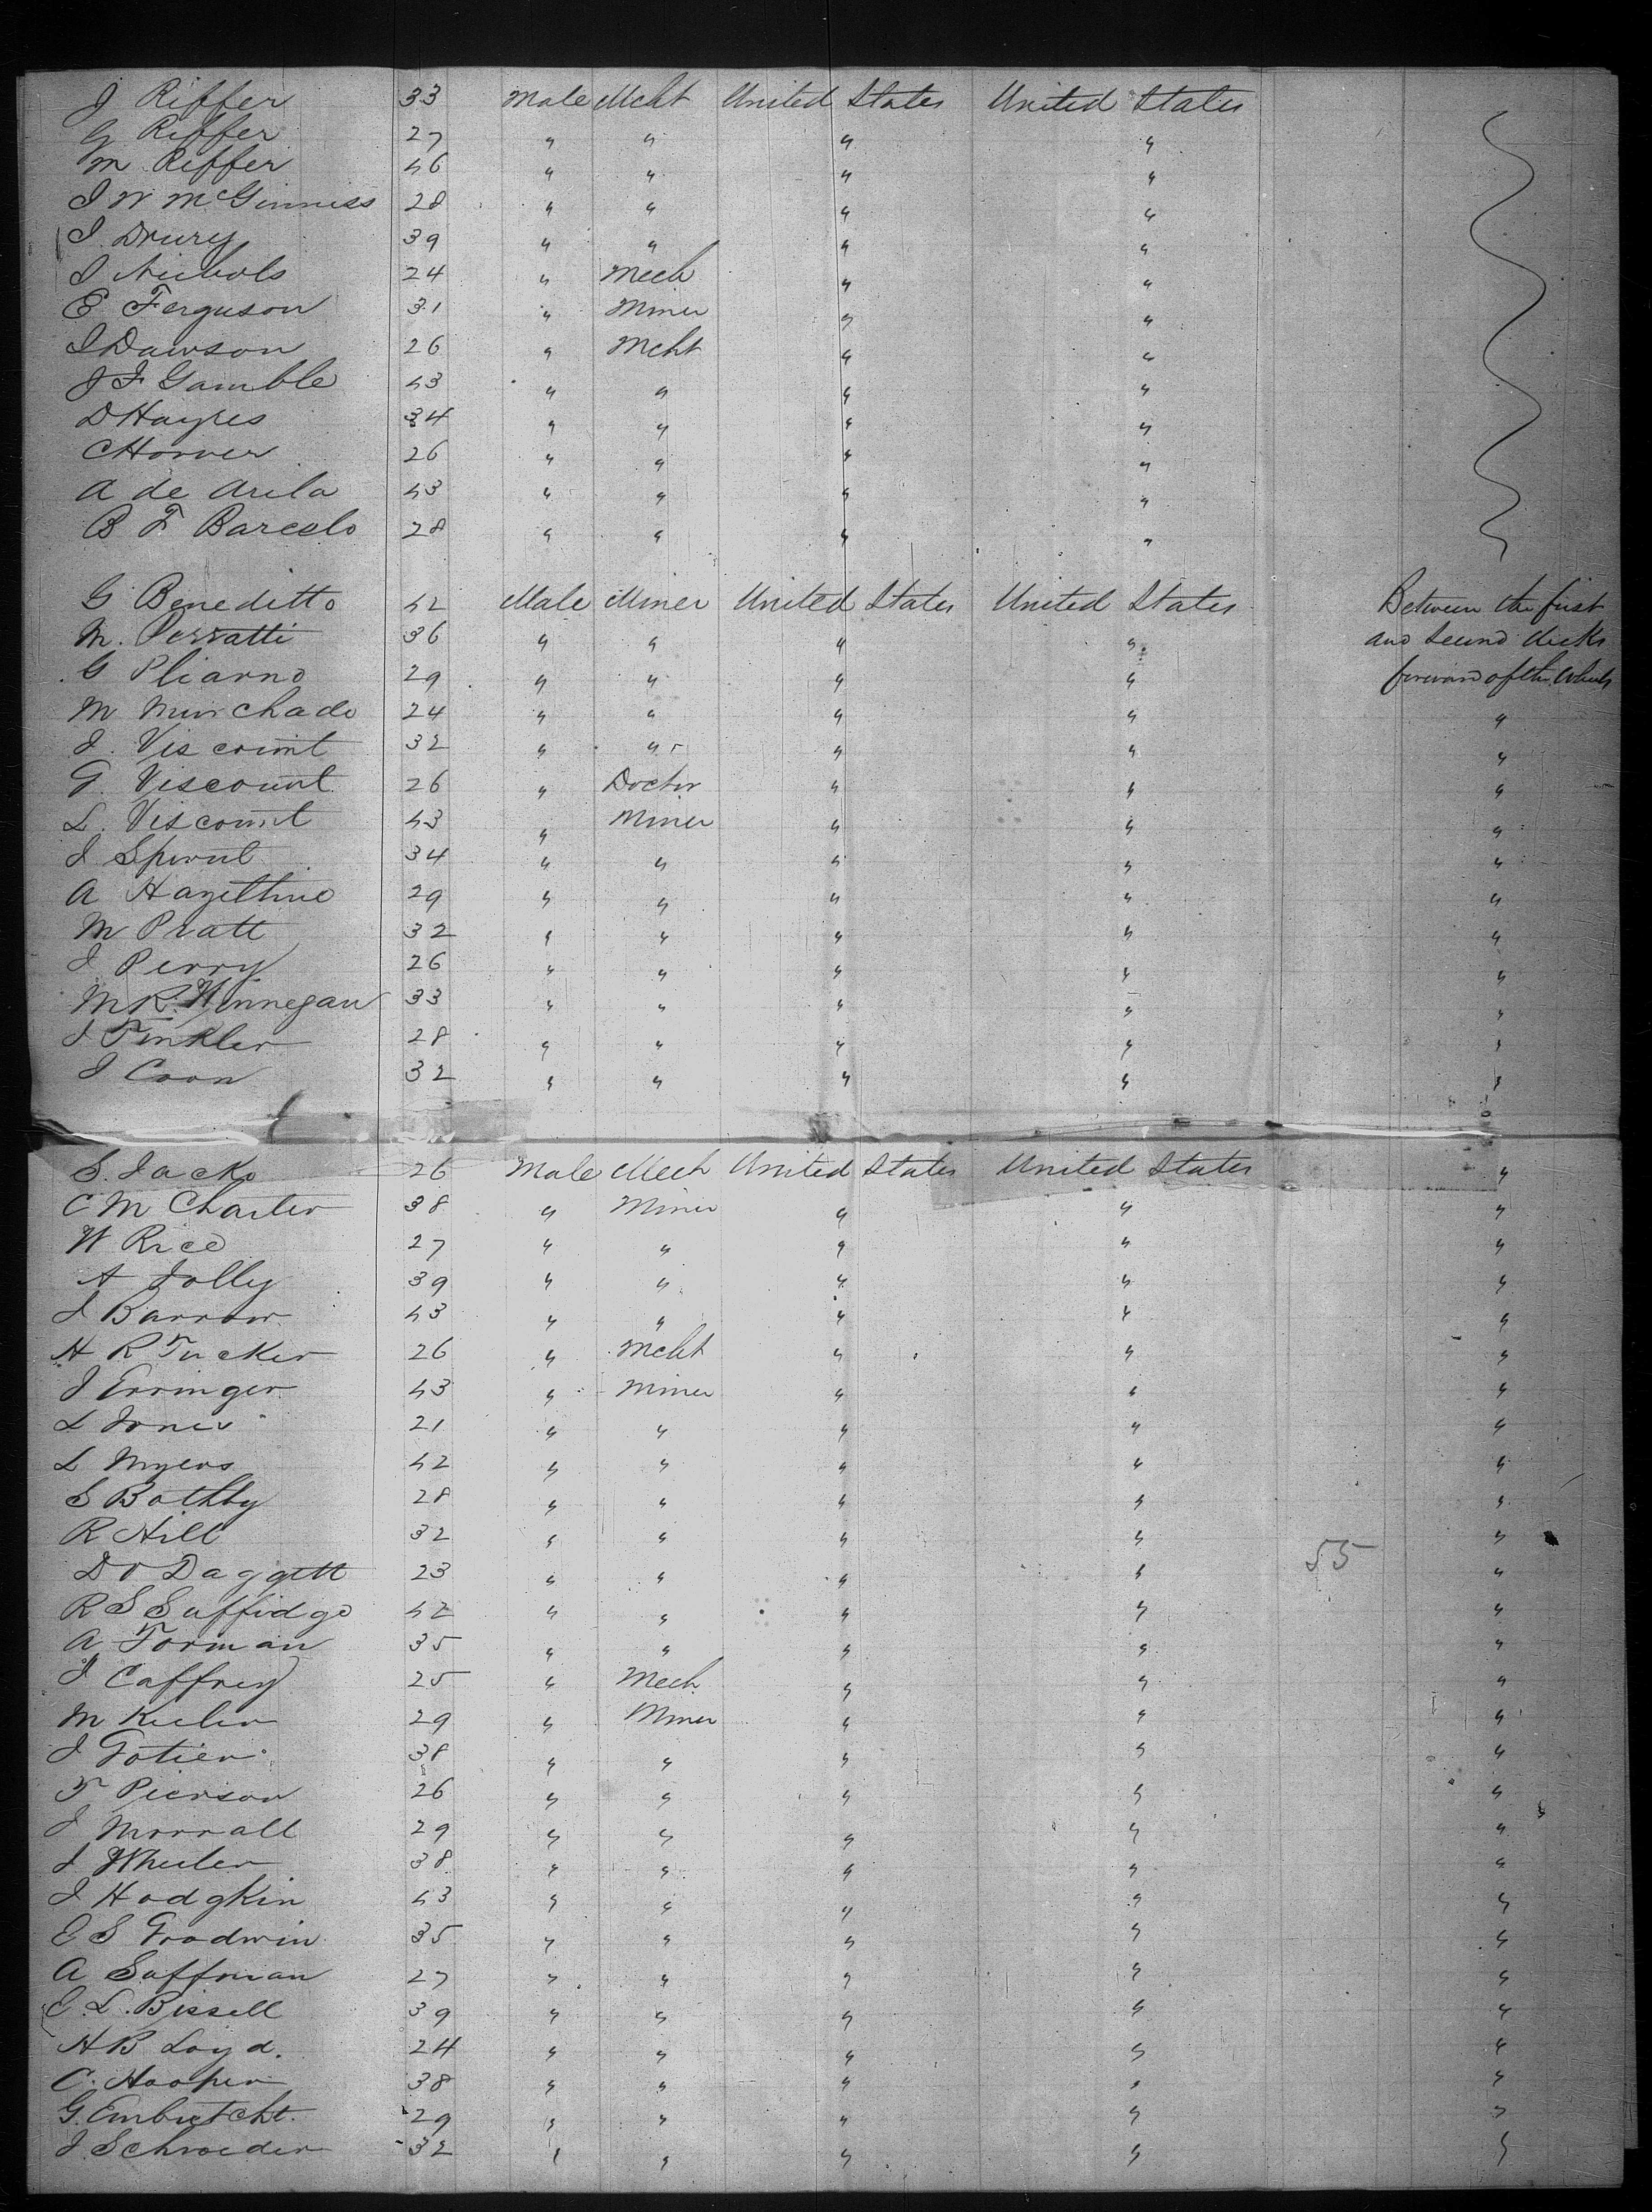 J Riffer 33 Male Mcht United States United States
G Riffer 27 " " " "
M Riffer 46 " " " "
J W McGinniss 28 " " " "
J Drury 39 " " " "
J Nichols 24 " Mech " "
E Ferguson 31 " Miner " "
J Dawson 26 " Mcht " "
J F Gamble 43 " " " "
D Hayres 34 " " " "
C Horner 26 " " " "
A de Arila 43 " " " "
B F Barcelo 28 " " " "
G Beneditto 42 Male Miner United States United States Between the first
M. Perratti 36 " " " " and second decks
G Pliarno 29 " " " " forward of the wheels
M Murchado 24 " " " " "
J. Viscount 32 " " " " "
G. Viscount 26 " Doctor " " "
L. Viscount 43 " Miner " " "
J 34 " " " " "
A Hazeltine 29 " " " " "
M Pratt 32 " " " " "
J Perry 26 " " " " "
M R. Winnegan 33 " " " " "
J Tinkler 28 " " " " "
J Coon 32 " " " " "
S. Jacks 26 Male Mech United States United States "
C M Charter 38 " Miner " " "
W Rice 27 " " " " "
A Jolly 39 " " " " "
J Barrow 43 " " " " "
H R Tucker 26 " Mcht " " "
J Erringer 43 " Miner " " "
L Jones 21 " " " " "
L Myers 42 " " " " "
S Bothby 28 " " " " "
R Hill 32 " " " " "
D O Daggett 23 " " " " 55 "
R S Suffidge 42 " " " " "
A Torman 35 " " " " "
J Caffrey 25 " Mech " " "
M Keeler 29 " Miner " " "
J Gotier 38 " " " " "
T Pierson 26 " " " " "
J Morrall 29 " " " " "
J Wheeler 38 " " " " "
J Hodgkin 43 " " " " "
E S Goodwin 35 " " " " "
A Suffman 27 " " " " "
E. L. Bissell 39 " " " " "
H B Loyd. 24 " " " " "
C. Hooper 38 " " " " "
G. Embrutcht. 29 " " " " "
J Schroeder 32 " " " " "